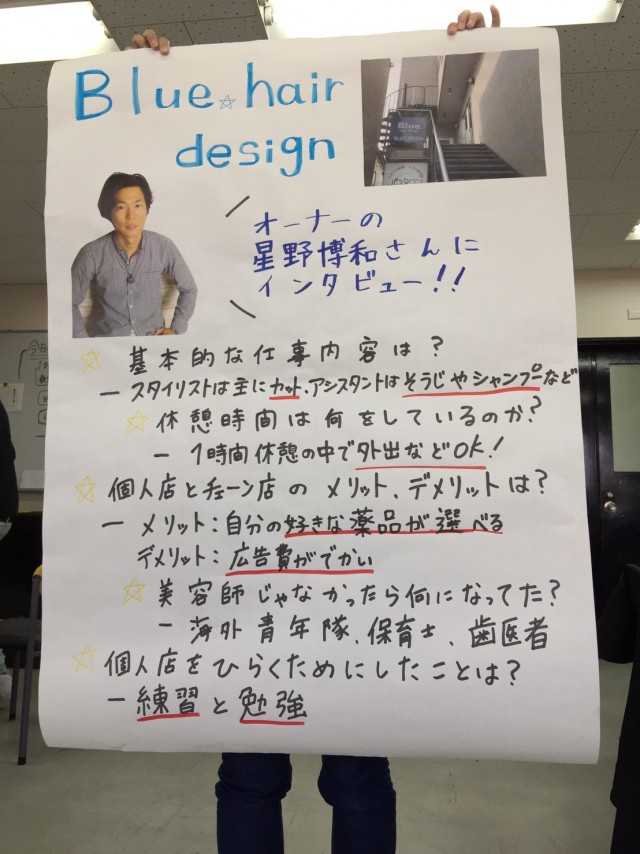 Blue☆hair
design
Blue
オーナーの
星野博和さんに
インタビュー!!
☆ 基本的な仕事内容は?
ースタイリストは主にカット、アシスタントはそうじやシャンプーなど
☆休憩時間は何をしているのか?
ー 1時間休憩の中で外出などOK!
☆個人店とチェーン店のメリット、デメリットは?
ー メリット:自分の好きな薬品が選べる
デメリット:広告費がでかい
☆美容師じゃなかったら何になってた?
ー海外青年隊、保育士、歯医者
☆個人店をひらくためにしたことは?
ー練習と勉強